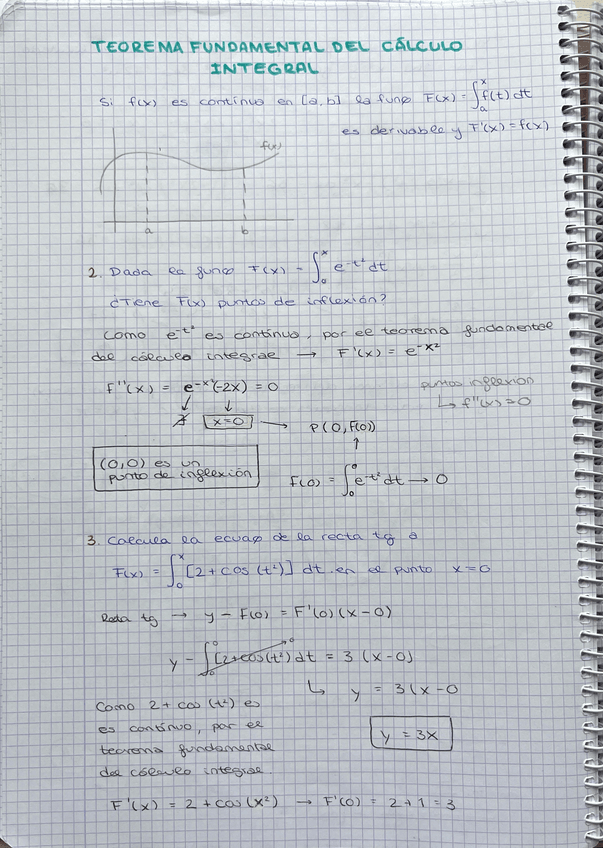 TEOREMA FUNDAMENTAL DEL CÁLCULO
INTEGRAL
Si f(x) es continua en [a,b] la funç F(x) = ∫ₐˣ f(t) dt
es derivable y F'(x) = f(x)
f(x)
a b
2. Dada la funç F(x) = ∫₀ˣ e^-t² dt
¿Tiene F(x) puntos de inflexión?
Como e^-t² es continua, por el teorema fundamental
del cálculo integral → F'(x) = e^-x²
F''(x) = e^-x²(-2x) = 0
puntos inflexion
↳ f''(x) = 0
∄ x=0 → P(0, F(0))
(0,0) es un
punto de inflexión
F(0) = ∫₀⁰ e^-t² dt → 0
3. Calcula la ecuaç de la recta tg a
F(x) = ∫₀ˣ [2 + cos (t²)] dt en el punto x=0
Recta tg → y - F(0) = F'(0) (x-0)
y - ∫₀⁰ (2+cos(t²) dt = 3 (x-0)
↳ y = 3(x-0
Como 2 + cos (t²) es
es continua, por el
teorema fundamental
del cálculo integral
y = 3x
F'(x) = 2 + cos(x²) → F'(0) = 2+1 = 3